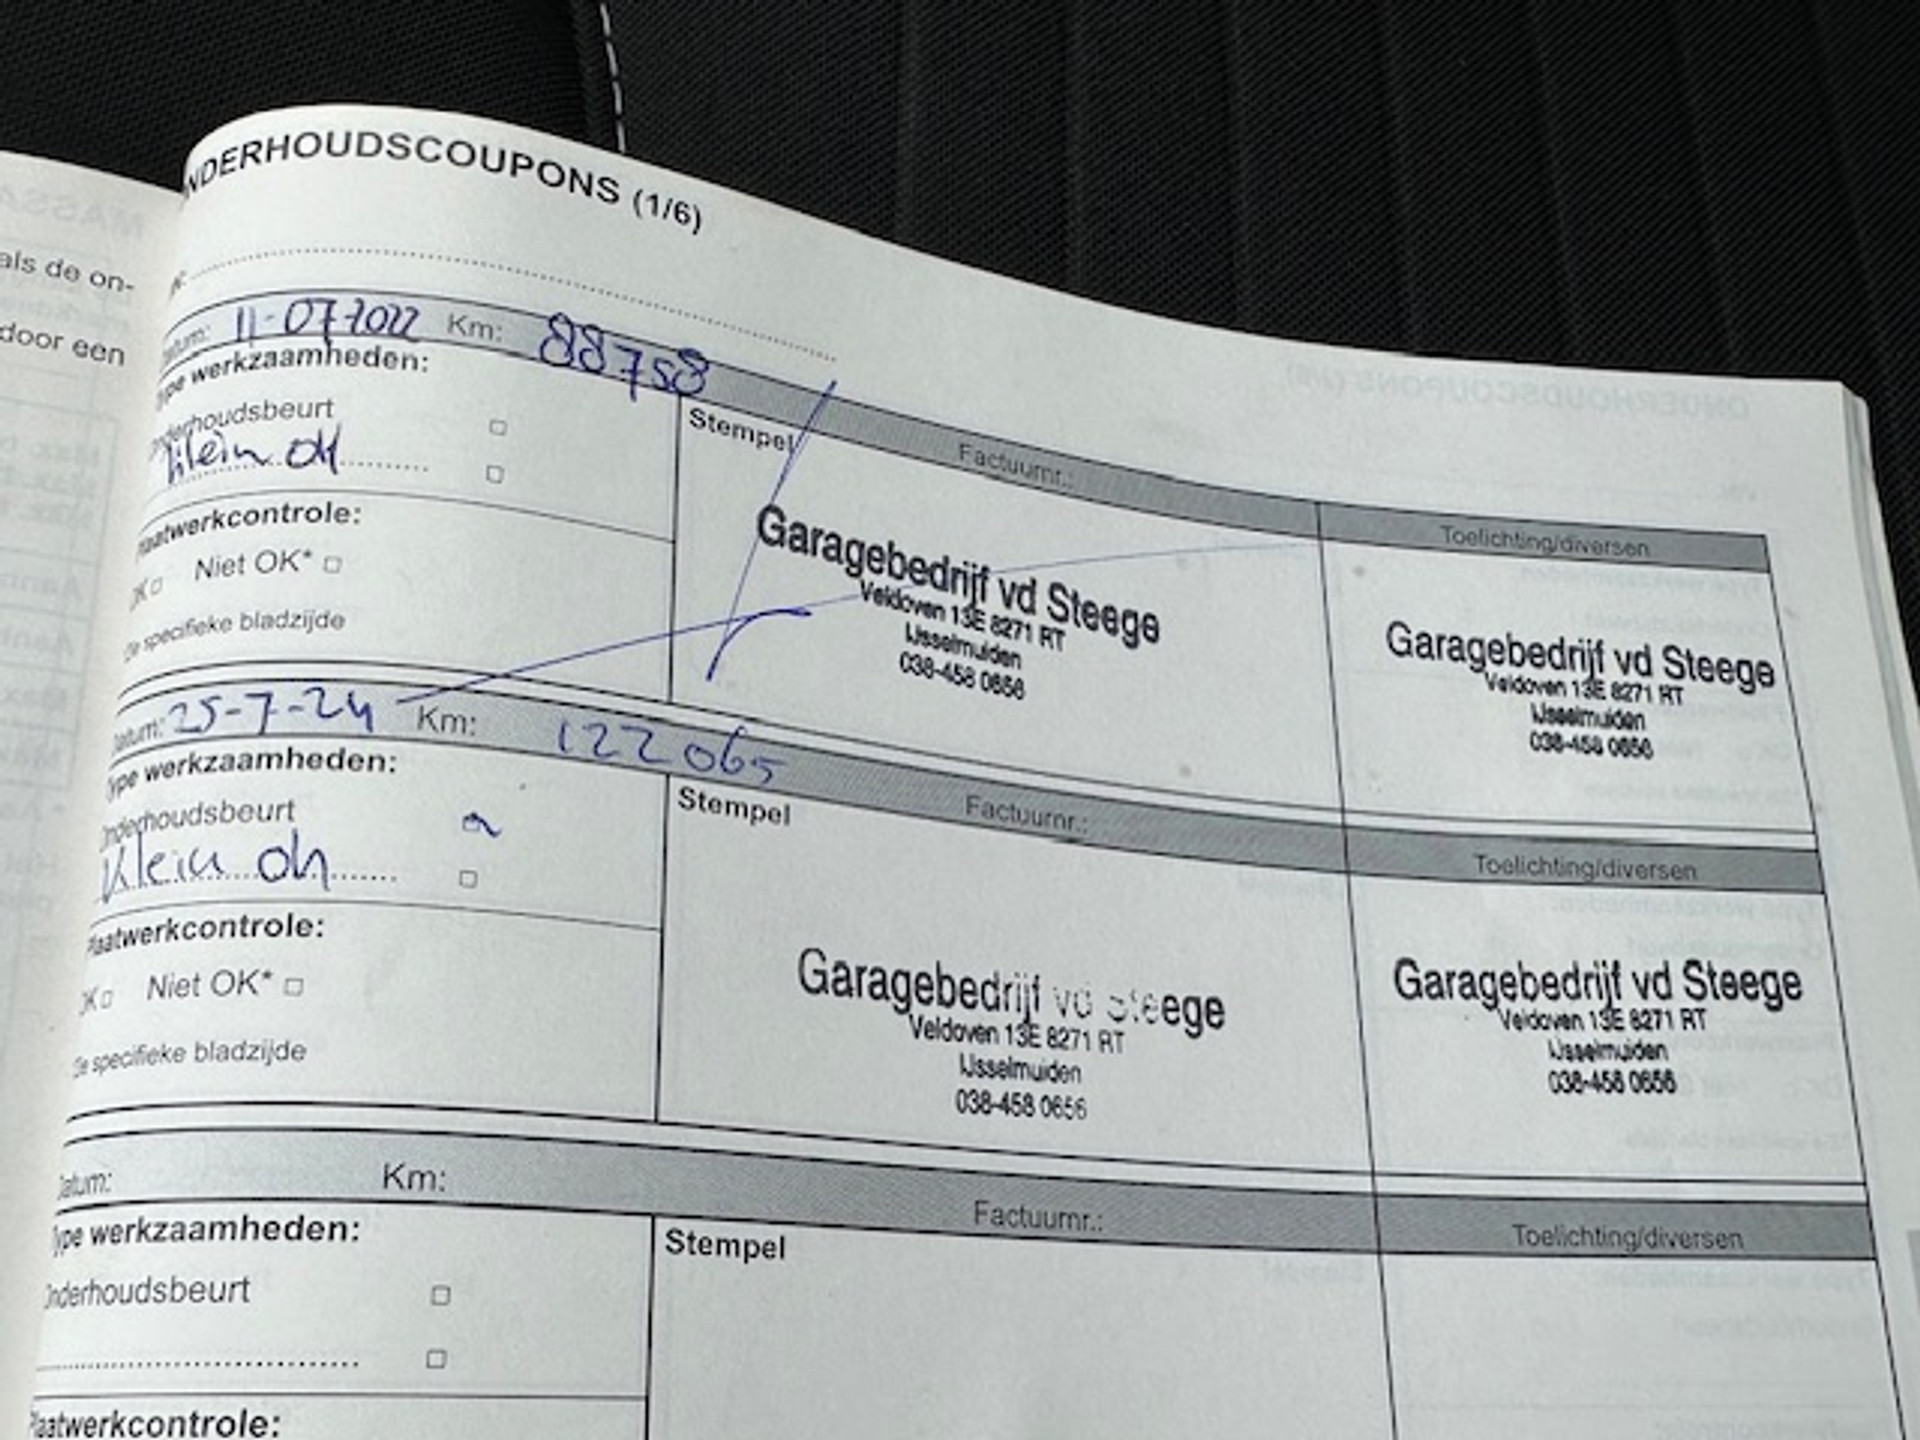 als de on-
door een
NDERHOUDSCOUPONS (1/6)
Datum: 11-07-2022 Km: 88758
Type werkzaamheden:
Onderhoudsbeurt
Klein OH
Stempel
Factuurnr.:
Toelichting/diversen
Plaatwerkcontrole:
OK Niet OK*
Zie specifieke bladzijde
Garagebedrijf vd Steege
Veldoven 13E 8271 RT
IJsselmuiden
038-458 0656
Garagebedrijf vd Steege
Veldoven 13E 8271 RT
IJsselmuiden
038-458 0656
Datum: 25-7-24 Km: 122065
Type werkzaamheden:
Onderhoudsbeurt
Klein oh
Stempel
Factuurnr.:
Toelichting/diversen
Plaatwerkcontrole:
OK Niet OK*
Zie specifieke bladzijde
Garagebedrijf vd Steege
Veldoven 13E 8271 RT
IJsselmuiden
038-458 0656
Garagebedrijf vd Steege
Veldoven 13E 8271 RT
IJsselmuiden
038-458 0656
Datum: Km:
Type werkzaamheden:
Onderhoudsbeurt
Stempel
Factuurnr.:
Toelichting/diversen
Plaatwerkcontrole: